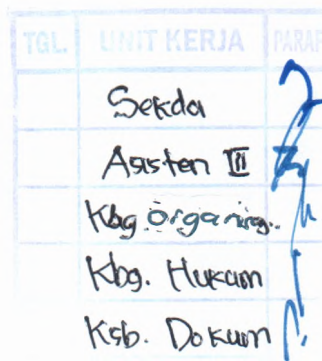 TGL. UNIT KERJA PARAF
Sekda
Asisten III
Kbg organis..
Kbg. Hukum
Ksb. Dokum